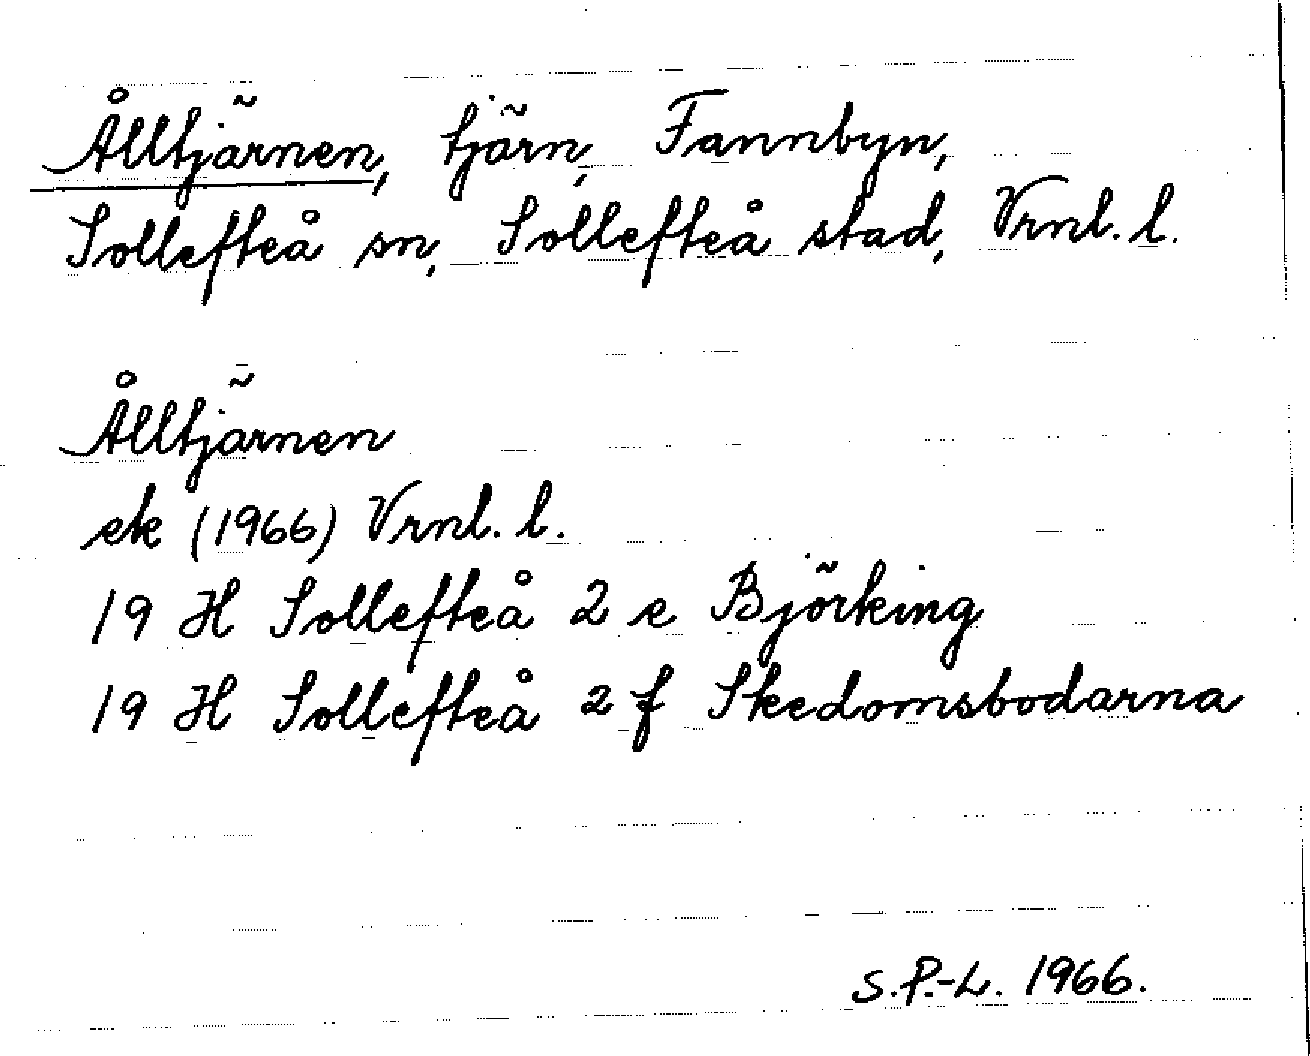 Ålltjärnen, tjärn, Fannbyn,
Sollefteå sn, Sollefteå stad, Vrnl. l.
Ålltjärnen
ek (1966) Vrnl. l.
19 H Sollefteå 2 e Björking
19 H Sollefteå 2 f Skedomsbodarna
S.P.-L. 1966.